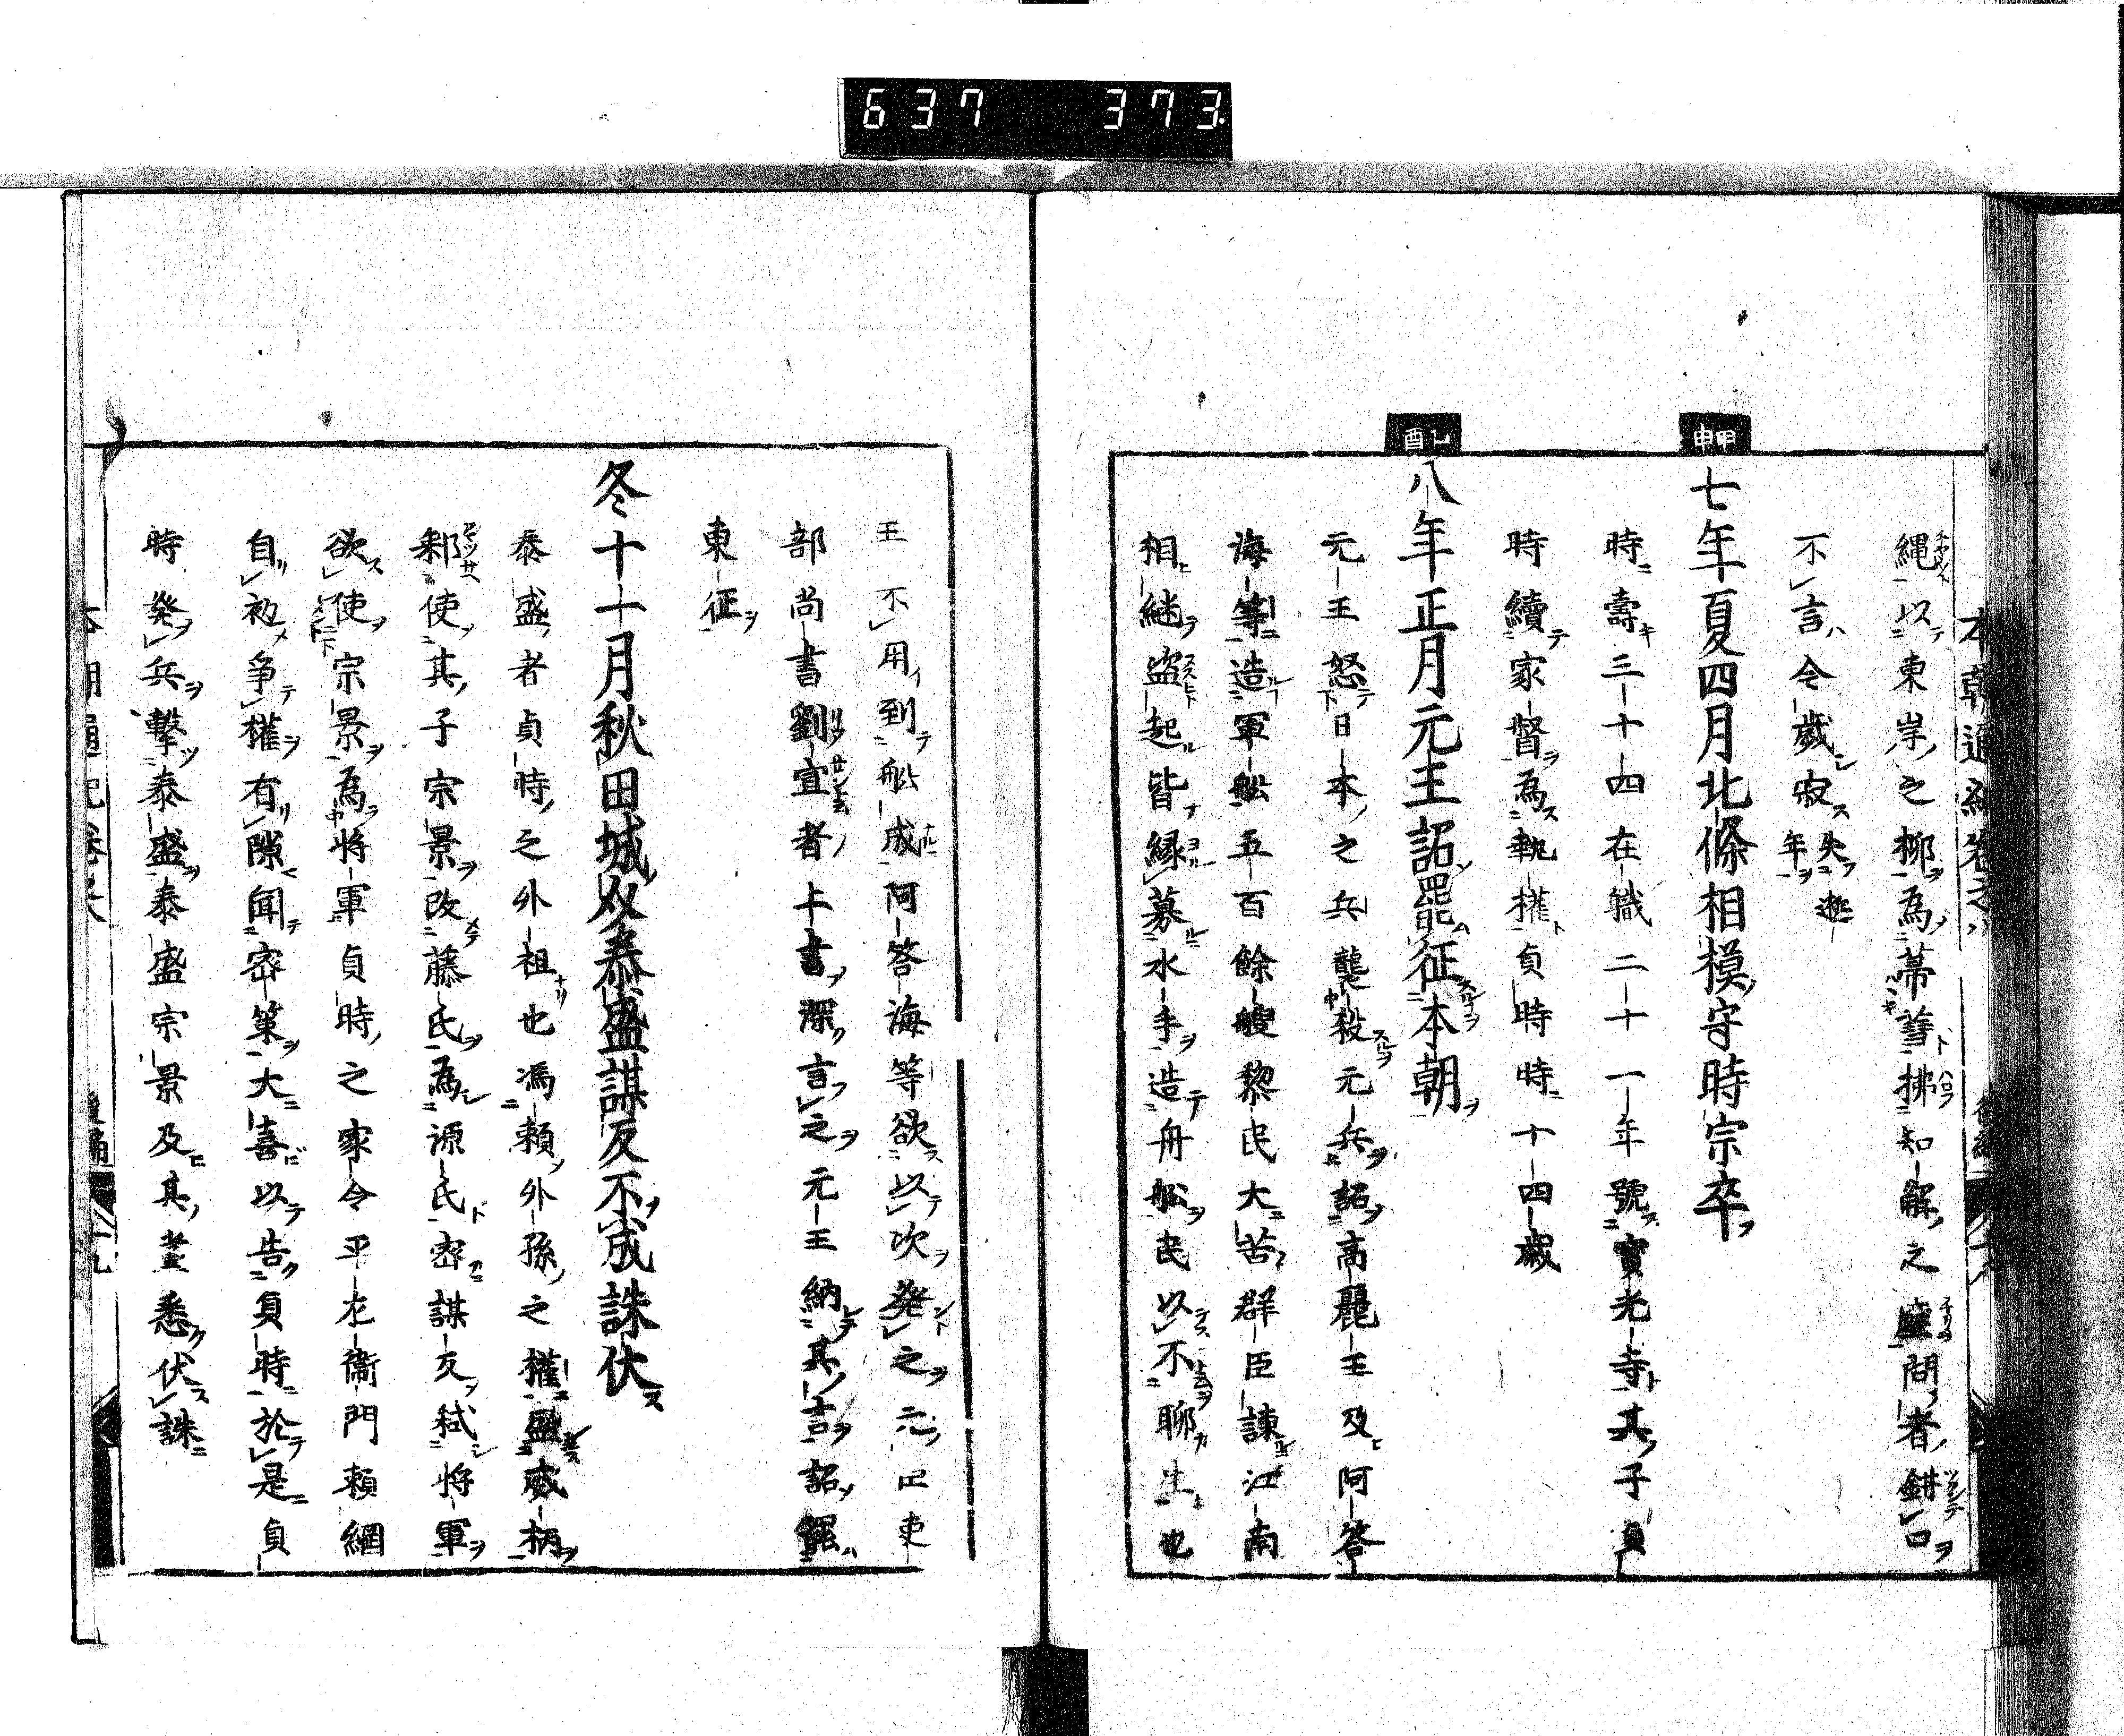 637 373
本朝通紀卷之八
縄以東岸之柳為箒篲拂知解之塵問者鉗口
不言令歳寂失年逝
甲申
七年夏四月北條相模守時宗卒
時壽三十四在職二十一年號寶光寺其子貞
時續家督為執權貞時時十四歳
乙酉
八年正月元王詔罷征本朝
元王怒日本之兵襲殺元兵詔高麗王及阿答
海等造軍舩五百餘艘黎民大苦群臣諫江南
相継盗起皆縁募水手造舟舩民以不聊生也
王不用到舩成阿答海等欲以次発之元吏
部尚書劉宣者上書深言之元王納其言詔罷
東征
冬十一月秋田城介泰盛謀反不成誅伏
泰盛者貞時之外祖也馮頼外孫之權盛威柄
剰使其子宗景改藤氏為源氏密謀反弑将軍
欲使宗景為将軍貞時之家令平左衞門頼綱
自初争權有隙聞密策大喜以告貞時於是貞
時発兵擊泰盛泰盛宗景及其黨悉伏誅